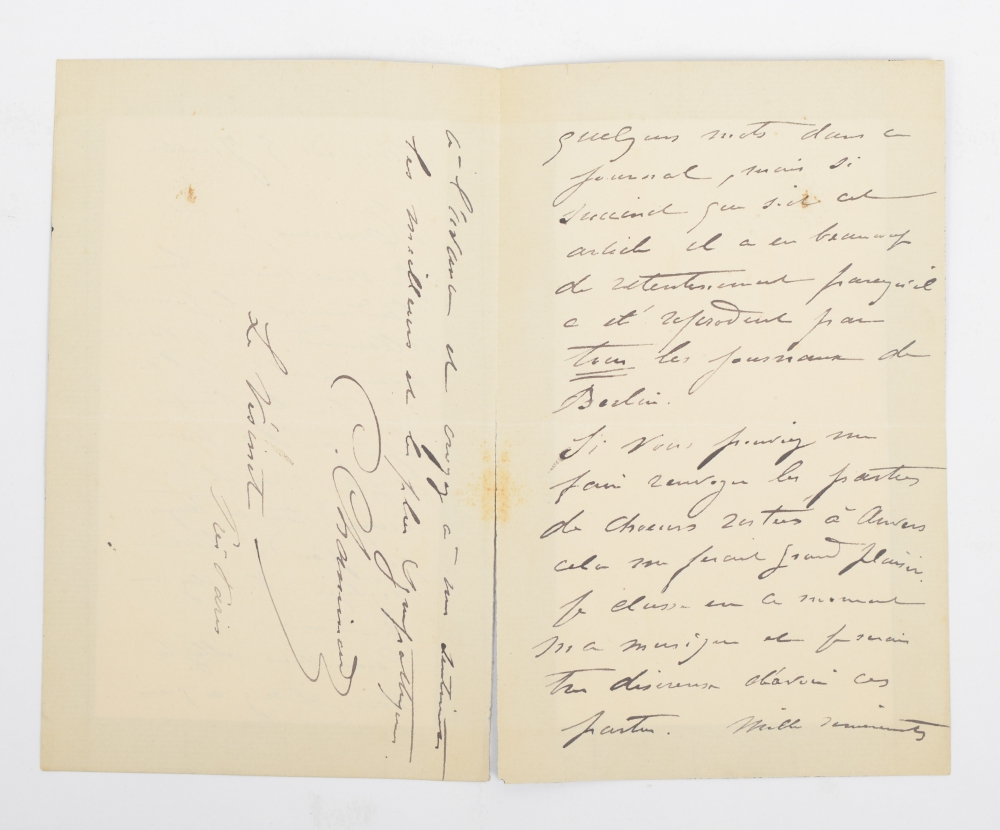 quelques mots dans ce
journal, mais si
succinct que soit cet
article il a eu beaucoup
de retentissement parcequ'il
a été reproduit par
tous les journaux de
Berlin.
Si vous pouviez me
faire renvoyer les parties
de chœurs restées à Anvers
cela me ferait grand plaisir.
Je classe en ce moment
ma musique et je serais
très désireuse d'avoir ces
parties. Mille remerciements
à l'avance et croyez à mes sentiments
les meilleurs et les plus sympathiques.
C. Chaminade
Le Vésinet
près Paris